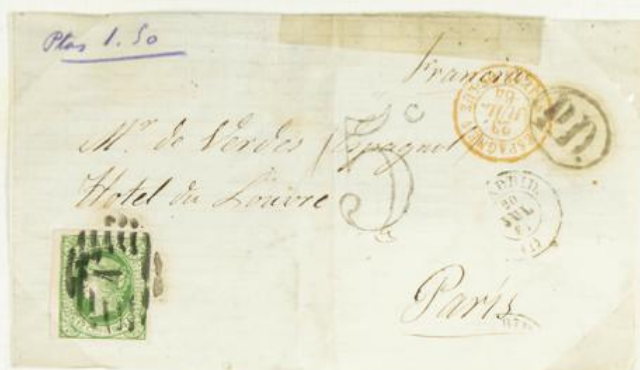 Ptas 1.50
Francia
PD
Mr. de Verdes (Espagnol)
Hotel du Louvre
5c
MADRID
20
JUL
Paris